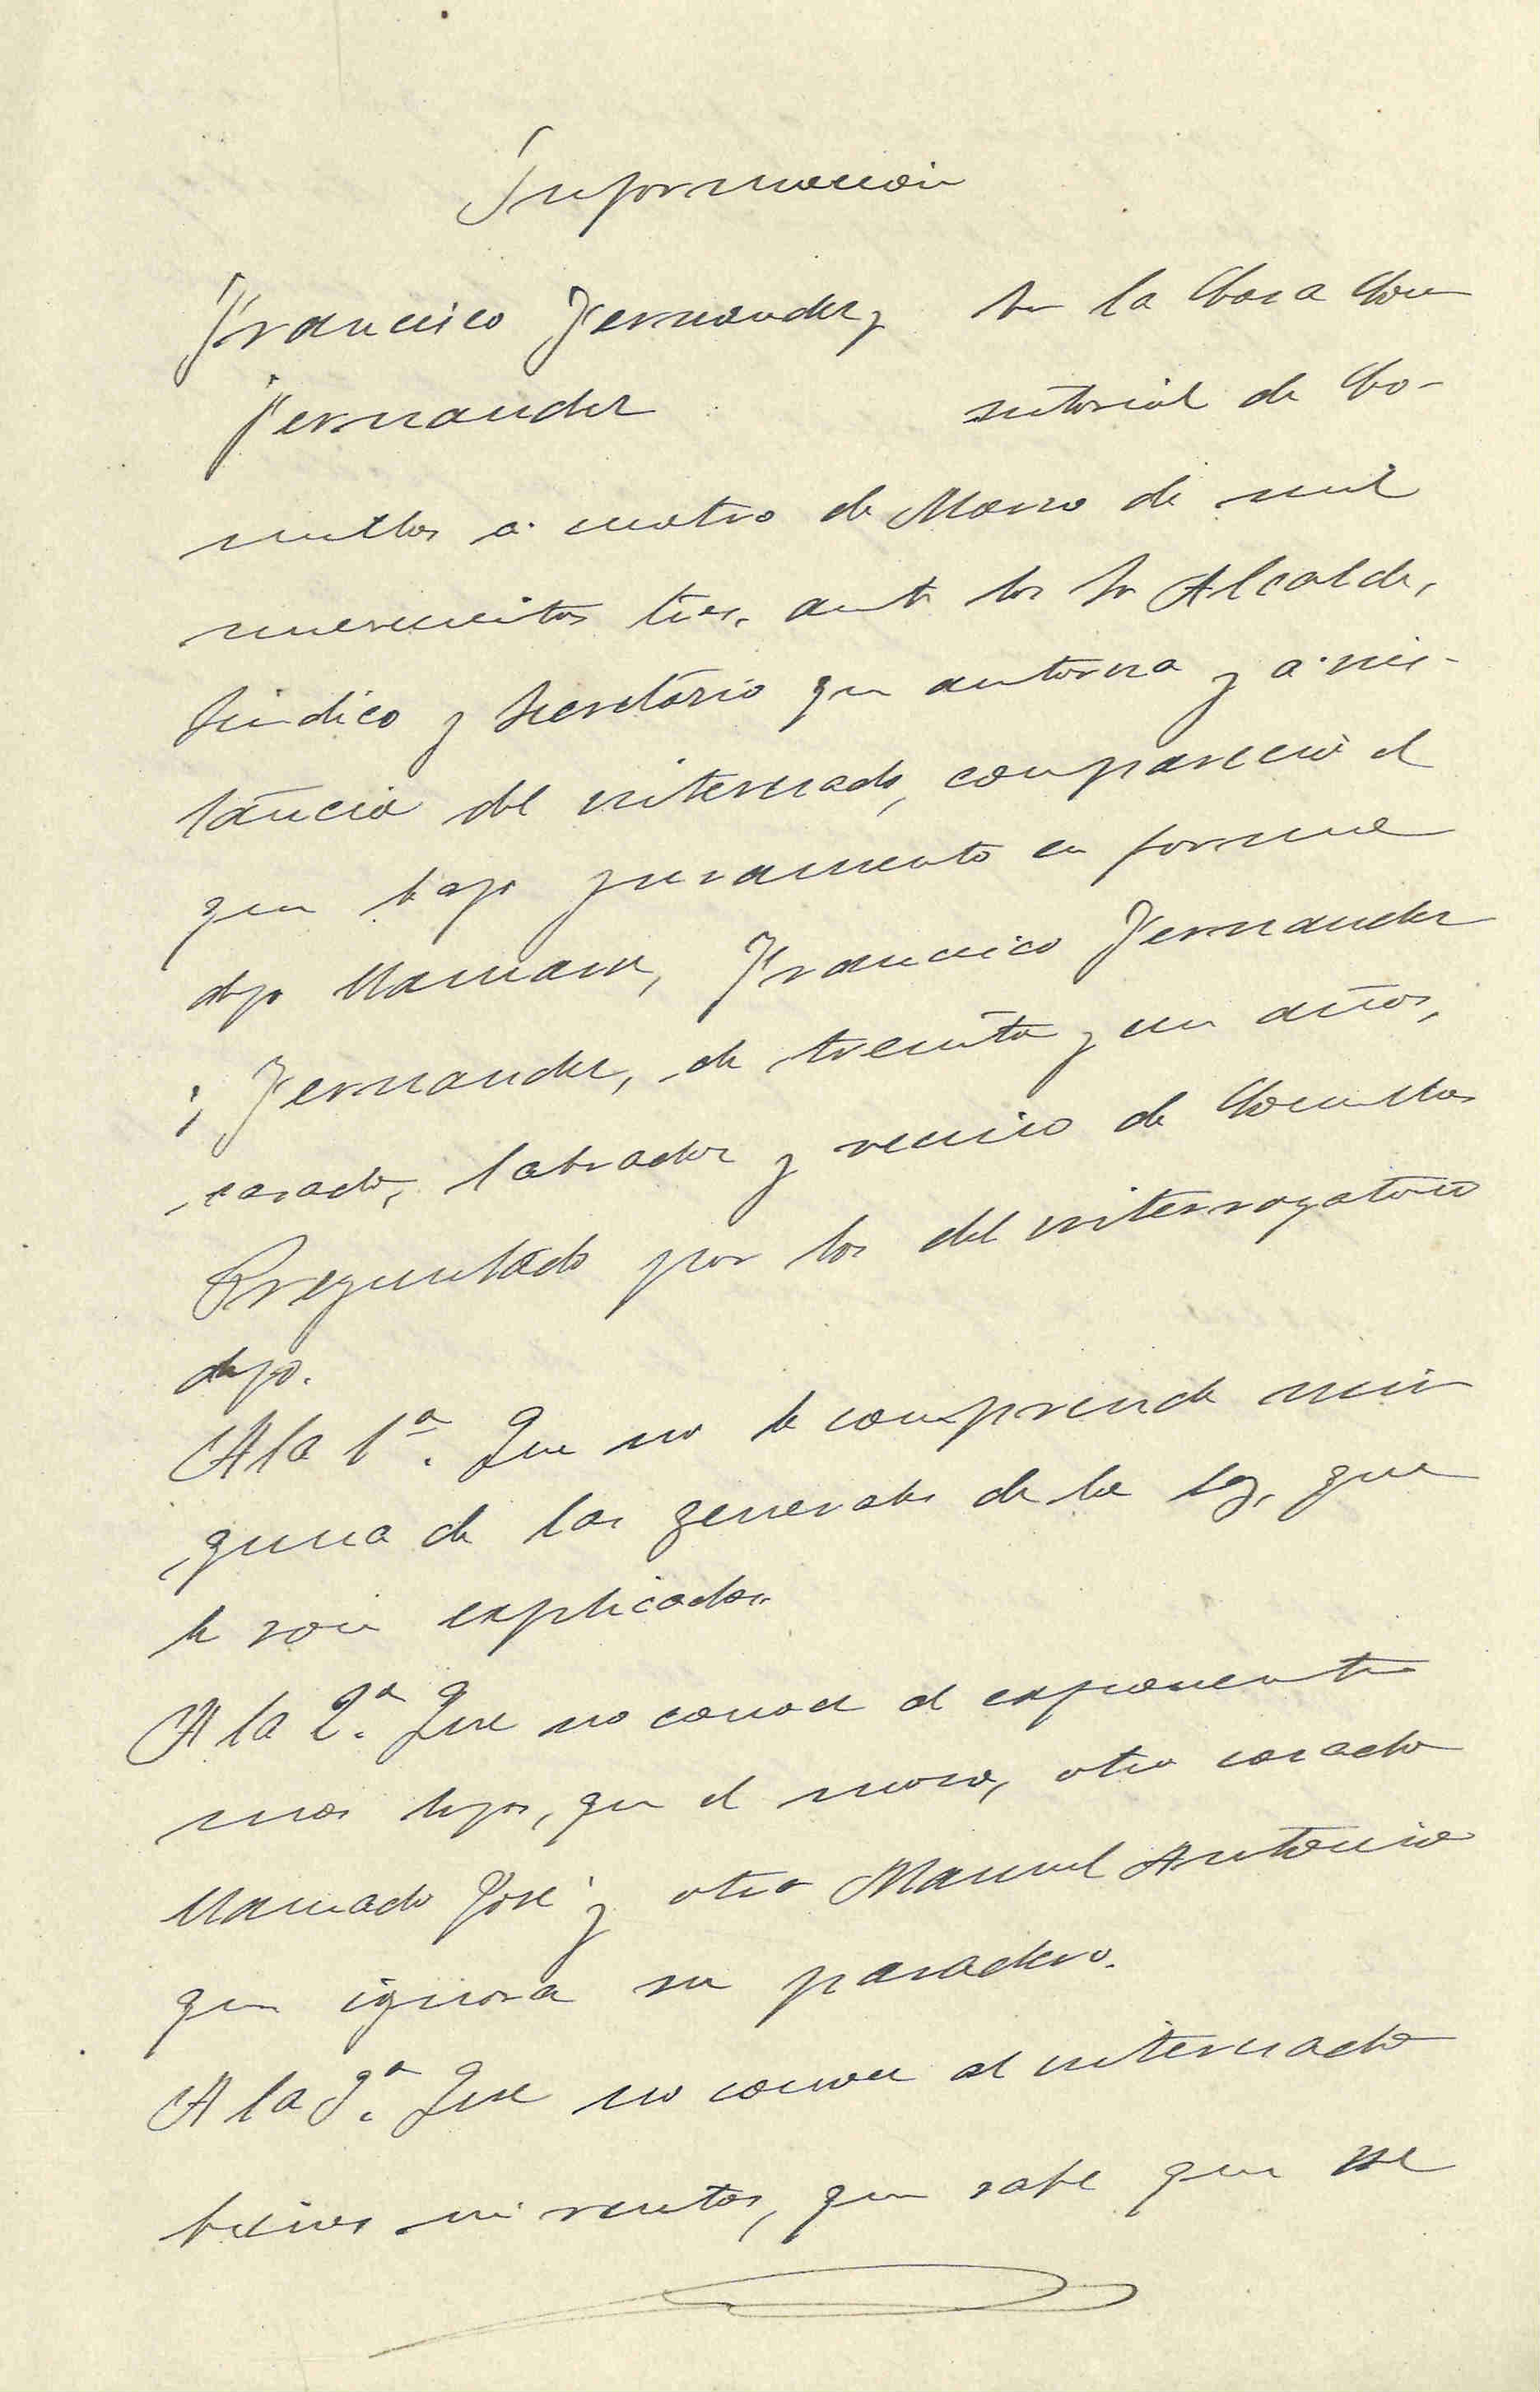 Informacion
Francisco Fernandez y En la Casa Con
Fernandez sistorial de Co-
millas a cuatro de Marzo de mil
novecientos tres, ante los Sr Alcalde,
Sindico y Secretario que autoriza y a ins-
tancia del interesado, comparecio el
que bajo juramento en forma
dijo llamarse, Francisco Fernandez
y Fernandez, de treinta y un años,
casado, labrador y vecino de Comillas
Preguntado por los del interrogatorio
dijo.
A la 1ª. Que no le comprende nin
guna de las generales de la ley, que
le son explicadas.
A la 2ª. Que no conoce al exponente
mas hijos, que el mozo, otro casado
llamado José y otro Manuel Antonio
que ignora su paradero.
A la 3ª. Que no conoce al interesado
bienes ni rentas, que sabe que se